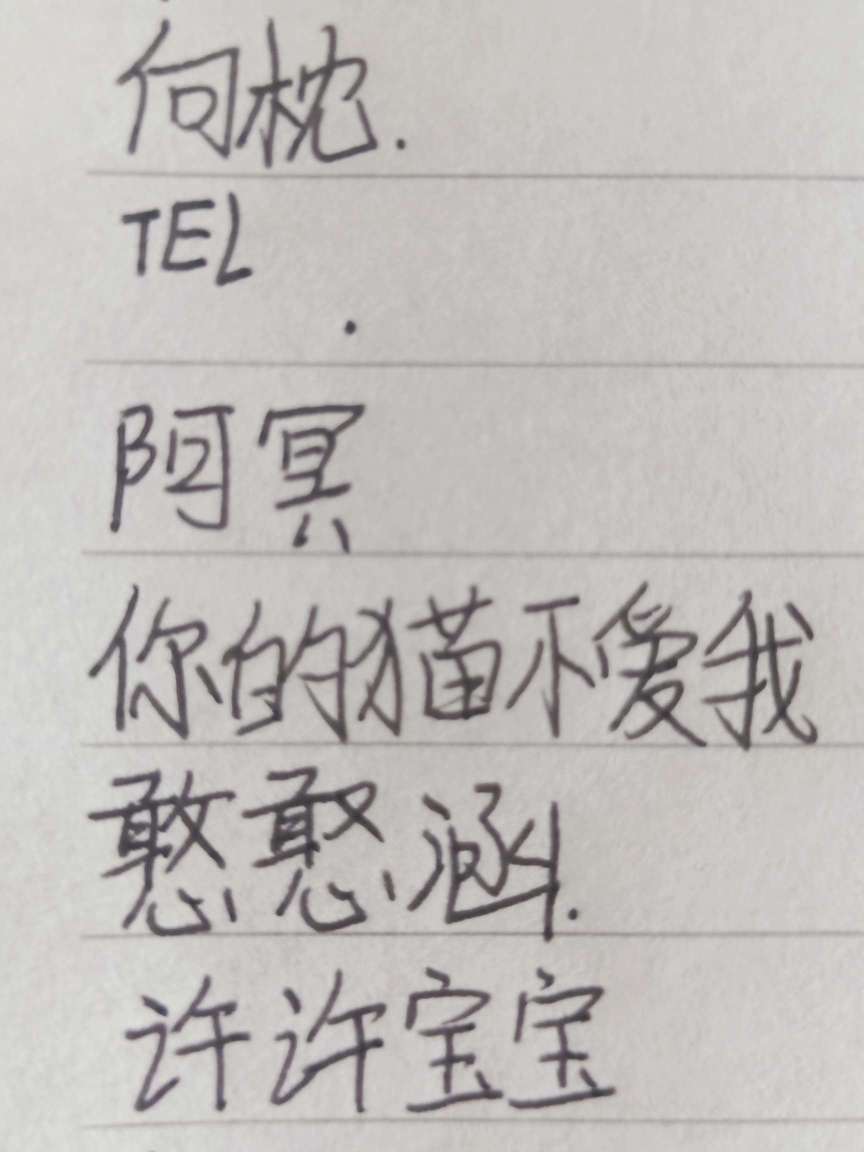 何枕.
TEL
.
阿冥
你的猫不爱我
憨憨涵.
许许宝宝